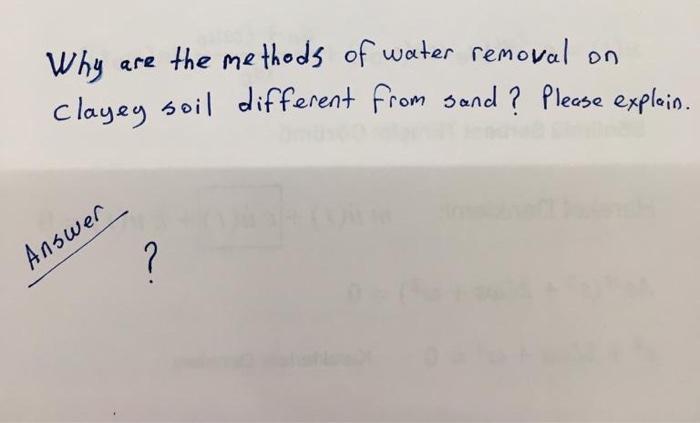 Why are the methods of water removal on
clayey soil different from sand? Please explain.
Answer
?